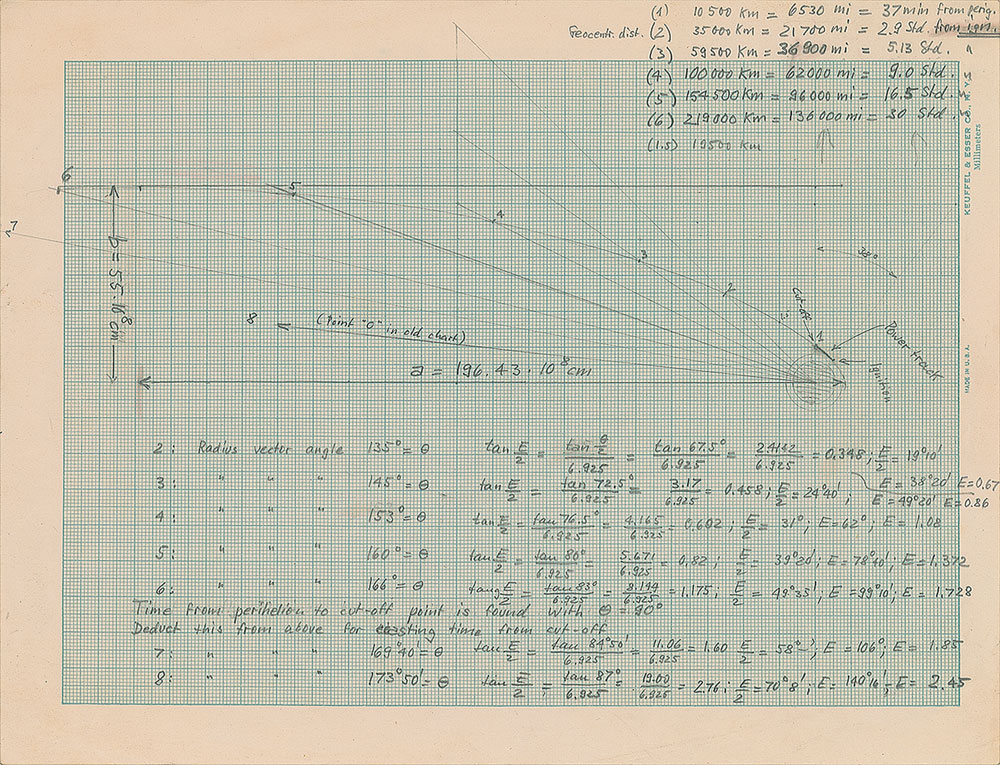 (1) 10 500 km = 6530 mi = 37 min from perig.
Geocentr. dist. (2) 35 000 km = 21 700 mi = 2.9 Std. from ign.
(3) 59 500 km = 36 900 mi = 5.13 Std. "
(4) 100 000 km = 62 000 mi = 9.0 Std. "
(5) 154 500 km = 96 000 mi = 16.5 Std. "
(6) 219 000 km = 136 000 mi = 30 Std. "
(1.5) 19500 km
KEUFFEL & ESSER CO., N. Y.
Millimeters
MADE IN U.S.A.
6
5
4
7
3
38°
2
b = 55.16⁸ cm
8
(Point "0" in old chart)
Cut-off
1.5
1
Power track
Ignition
a = 196.43 · 10⁸ cm
2: Radius vector angle 135° = θ tan E/2 = tan θ/2 / 6.925 = tan 67.5° / 6.925 = 2.4142 / 6.925 = 0.348; E/2 = 19°10'
E = 38°20' E = 0.67
3: " " " 145° = θ tan E/2 = tan 72.5° / 6.925 = 3.17 / 6.925 = 0.458; E/2 = 24°40';
E = 49°20' E = 0.86
4: " " " 153° = θ tan E/2 = tan 76.5° / 6.925 = 4.165 / 6.925 = 0.602; E/2 = 31°; E = 62°; E = 1.08
5: " " " 160° = θ tan E/2 = tan 80° / 6.925 = 5.671 / 6.925 = 0.82; E/2 = 39°20'; E = 78°40'; E = 1.372
6: " " " 166° = θ tang E/2 = tan 83° / 6.925 = 8.144 / 6.925 = 1.175; E/2 = 49°35'; E = 99°10'; E = 1.728
Time from perihelion to cut-off point is found with θ = 90°
Deduct this from above for coasting time from cut-off
7: " " " 169°40' = θ tan E/2 = tan 84°50' / 6.925 = 11.06 / 6.925 = 1.60 E/2 = 58°–'; E = 106°; E = 1.85
8: " " " 173°50' = θ tan E/2 = tan 87° / 6.925 = 19.00 / 6.925 = 2.76; E/2 = 70°8'; E = 140°16'; E = 2.45